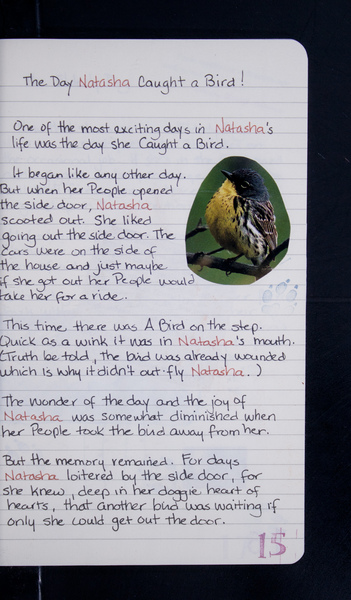 The Day Natasha Caught a Bird!
One of the most exciting days in Natasha's
life was the day she Caught a Bird.
It began like any other day.
But when her People opened
the side door, Natasha
scooted out. She liked
going out the side door. The
cars were on the side of
the house and just maybe
if she got out her People would
take her for a ride.
This time there was A Bird on the step.
Quick as a wink it was in Natasha's mouth.
(Truth be told, the bird was already wounded
which is why it didn't out-fly Natasha.)
The wonder of the day and the joy of
Natasha was somewhat diminished when
her People took the bird away from her.
But the memory remained. For days
Natasha loitered by the side door, for
she knew, deep in her doggie heart of
hearts, that another bird was waiting if
only she could get out the door.
15